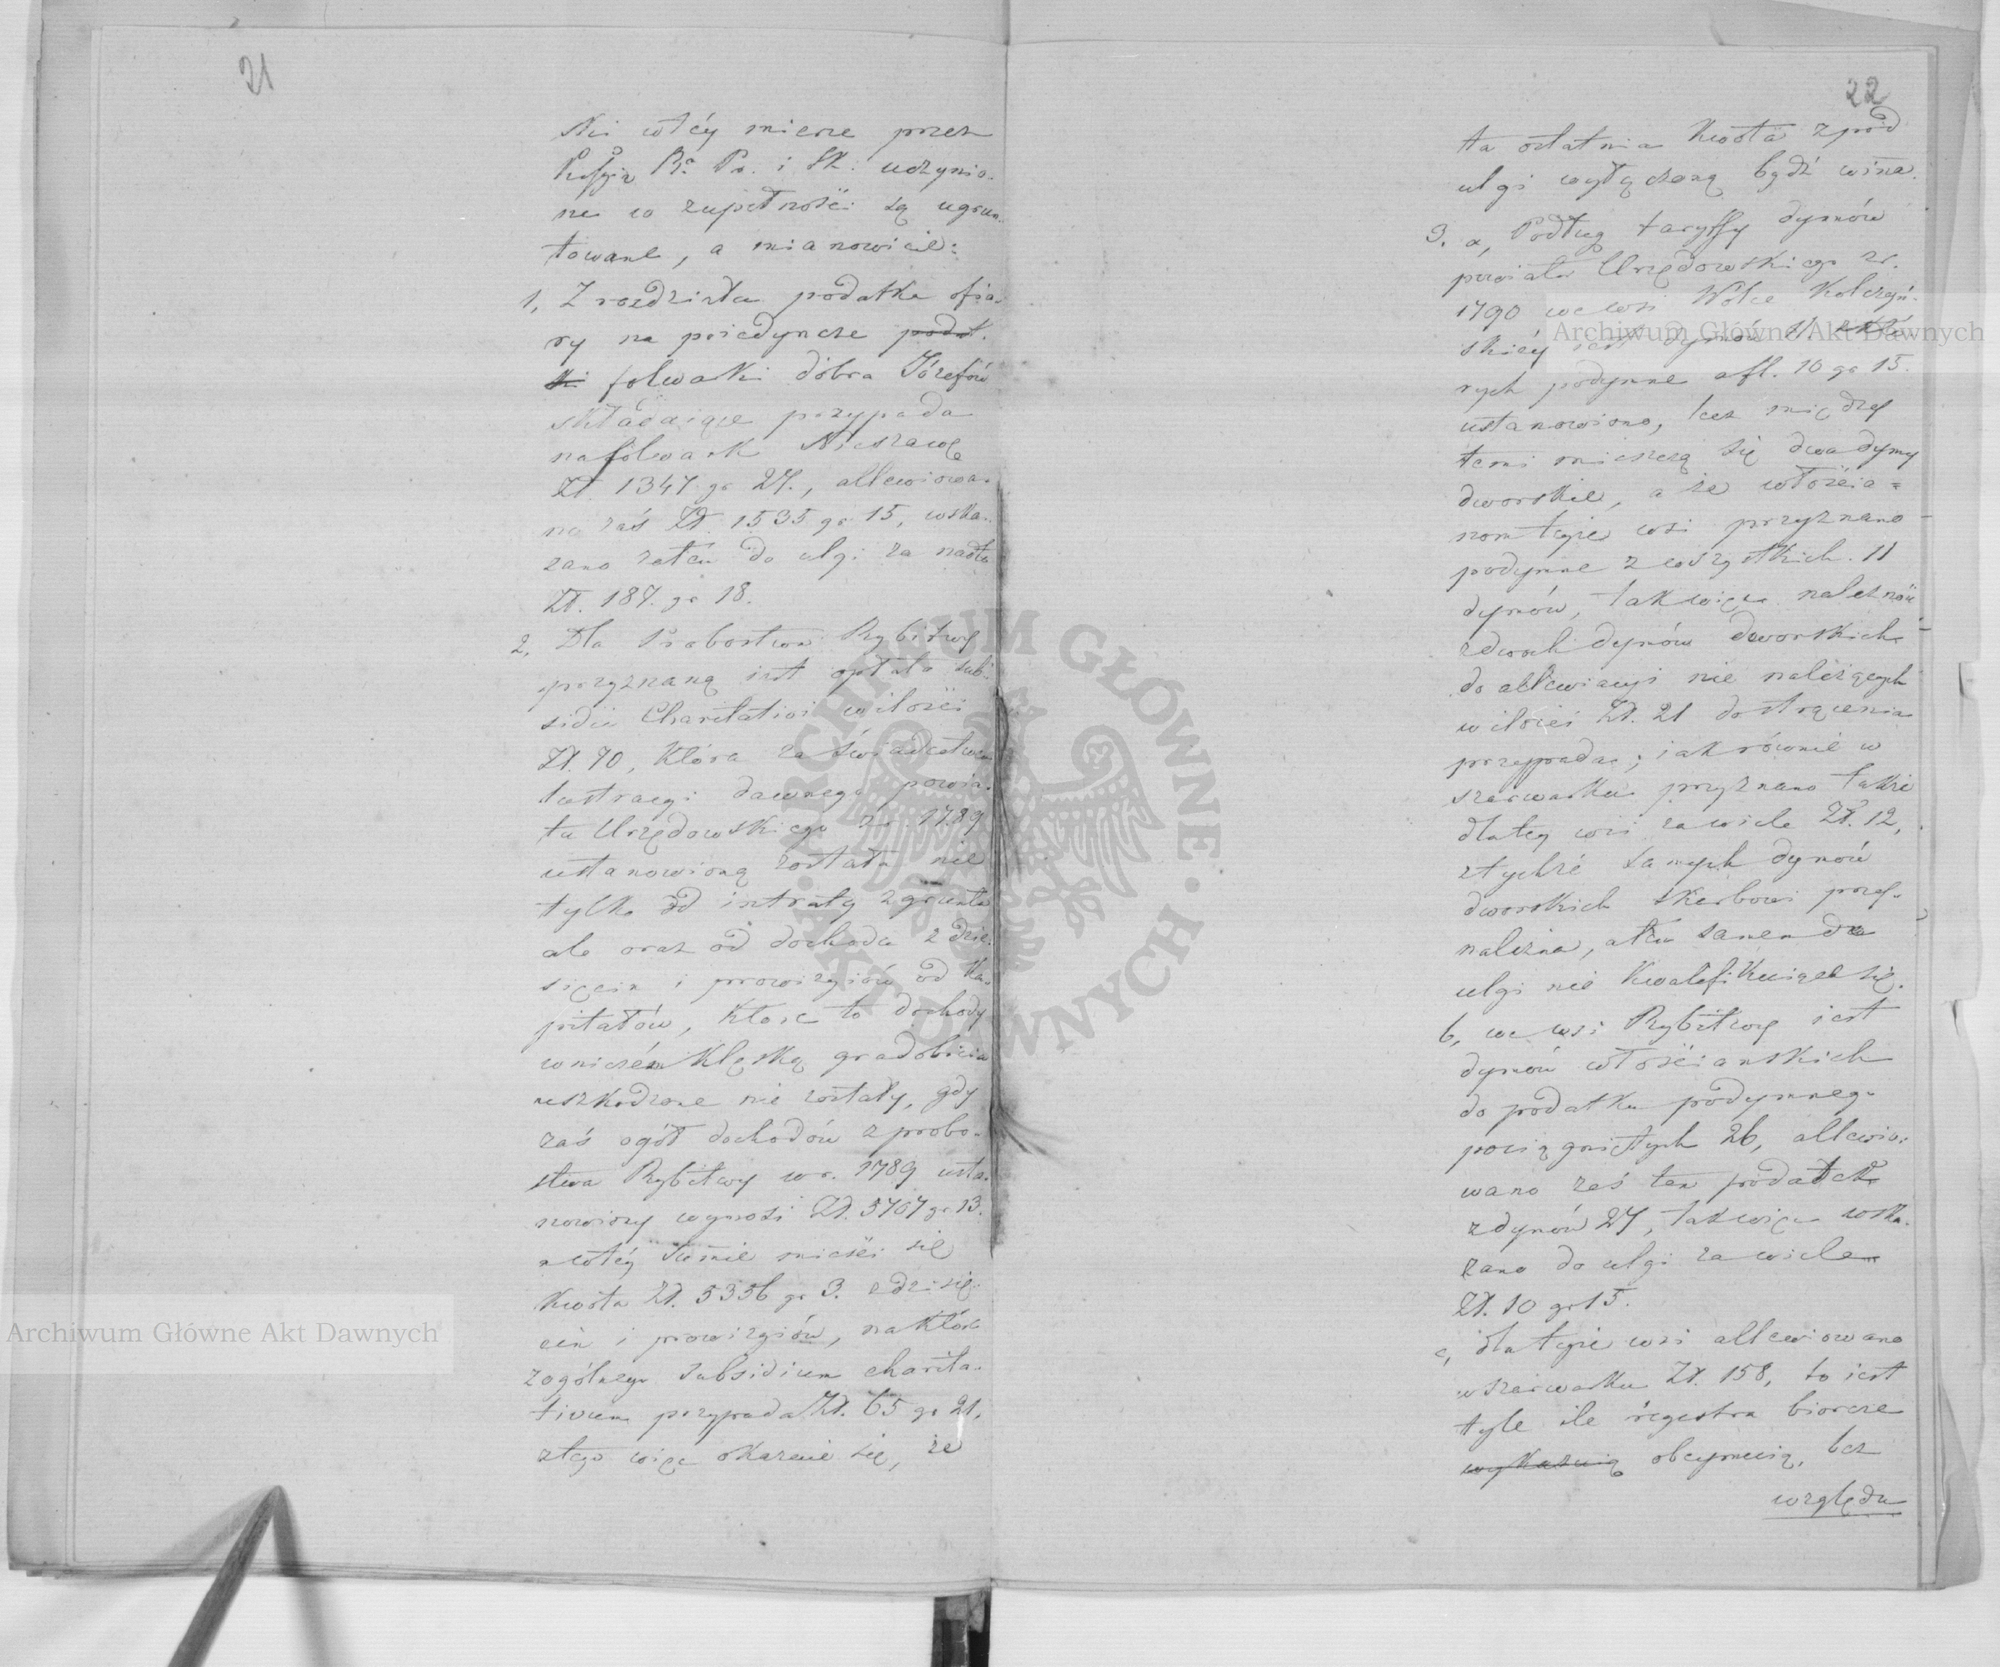 21
ki wtéy mierze przez
Kr. Pr. i Sk: uczynio-
ne w zupełności są ugrun-
towane, a mianowicie:
1, Z rozdziału podatku ofia-
ry na poiedyncze podat-
ki folwarki dobra Józefów
składaiące przypada
na folwark Nieszawę
Zł. 1347 gr 27., allewiowa-
no zaś Zł. 1535 gr 15, wska-
zano zatém do ulgi za nadto
Zł. 187. gr 18.
2, Dla Probostwa Rybitwy
przyznaną iest opłata sub-
sidii Charitativi wilości
Zł. 70, która za świadectwem
lustracyi dawnego powia-
tu Urzędowskiego z r. 1789
ustanowioną została nie
tylko od intraty z gruntu
ale oraz od dochodu z dzie-
sięcin i prowizyiów od ka-
pitałów, które to dochody
wniczém klęską gradobicia
uszkodzone nie zostały, gdy
zaś ogół dochodów z probo-
stwa Rybitwy w r. 1789 usta-
nowiony wynosi Zł. 5707 gr 13.
a wtéy summie mieści się
kwota Zł. 5356 gr 3. z dziesię-
cin i prowizyiów, na które
z ogólnego subsidium charita-
tivum przypada Zł. 65 gr 21,
z tego więc okazuie się, że
22
ta ostatnia kwota z pod
ulgi wyłączoną bydź winna.
3. a, Podług taryffy dymów
powiatu Urzędowskiego z r.
1790 we wsi Wólce Kolczyń-
skiéy iest dymów 11. z któ-
rych podymne a fl. 10 gr 15.
ustanowiono, lecz między
temi mieszczą się dwa dymy
dworskie, a że włościa=
nom teyże wsi przyznano
podymne z wszystkich 11
dymów, tak więc należność
z dwóch dymów dworskich
do allewiacyi nie należących
w ilości Zł. 21 do strącenia
przypada; iak równie w
szarwarku przyznano także
dla tey wsi za wiele Zł. 12,
z tychże samych dymów
dworskich Skarbowi przy-
należna, a tém samem do
ulgi nie kwalifikuiąca się.
b, we wsi Rybitwy iest
dymów włościanskich
do podatku podymnego
pociągniętych 26, allewio-
wano zaś ten podatek
z dymów 27, tak więc wska-
zano do ulgi za wiele
Zł. 10 gr 15.
c, dla teyże wsi allewiowano
w szarwarku Zł. 158, to iest
tyle ile regestra biorcze
wykazuią obeymuią, bez
względu
Archiwum Główne Akt Dawnych
Archiwum Główne Akt Dawnych
ARCHIWUM GŁÓWNE AKT DAWNYCH